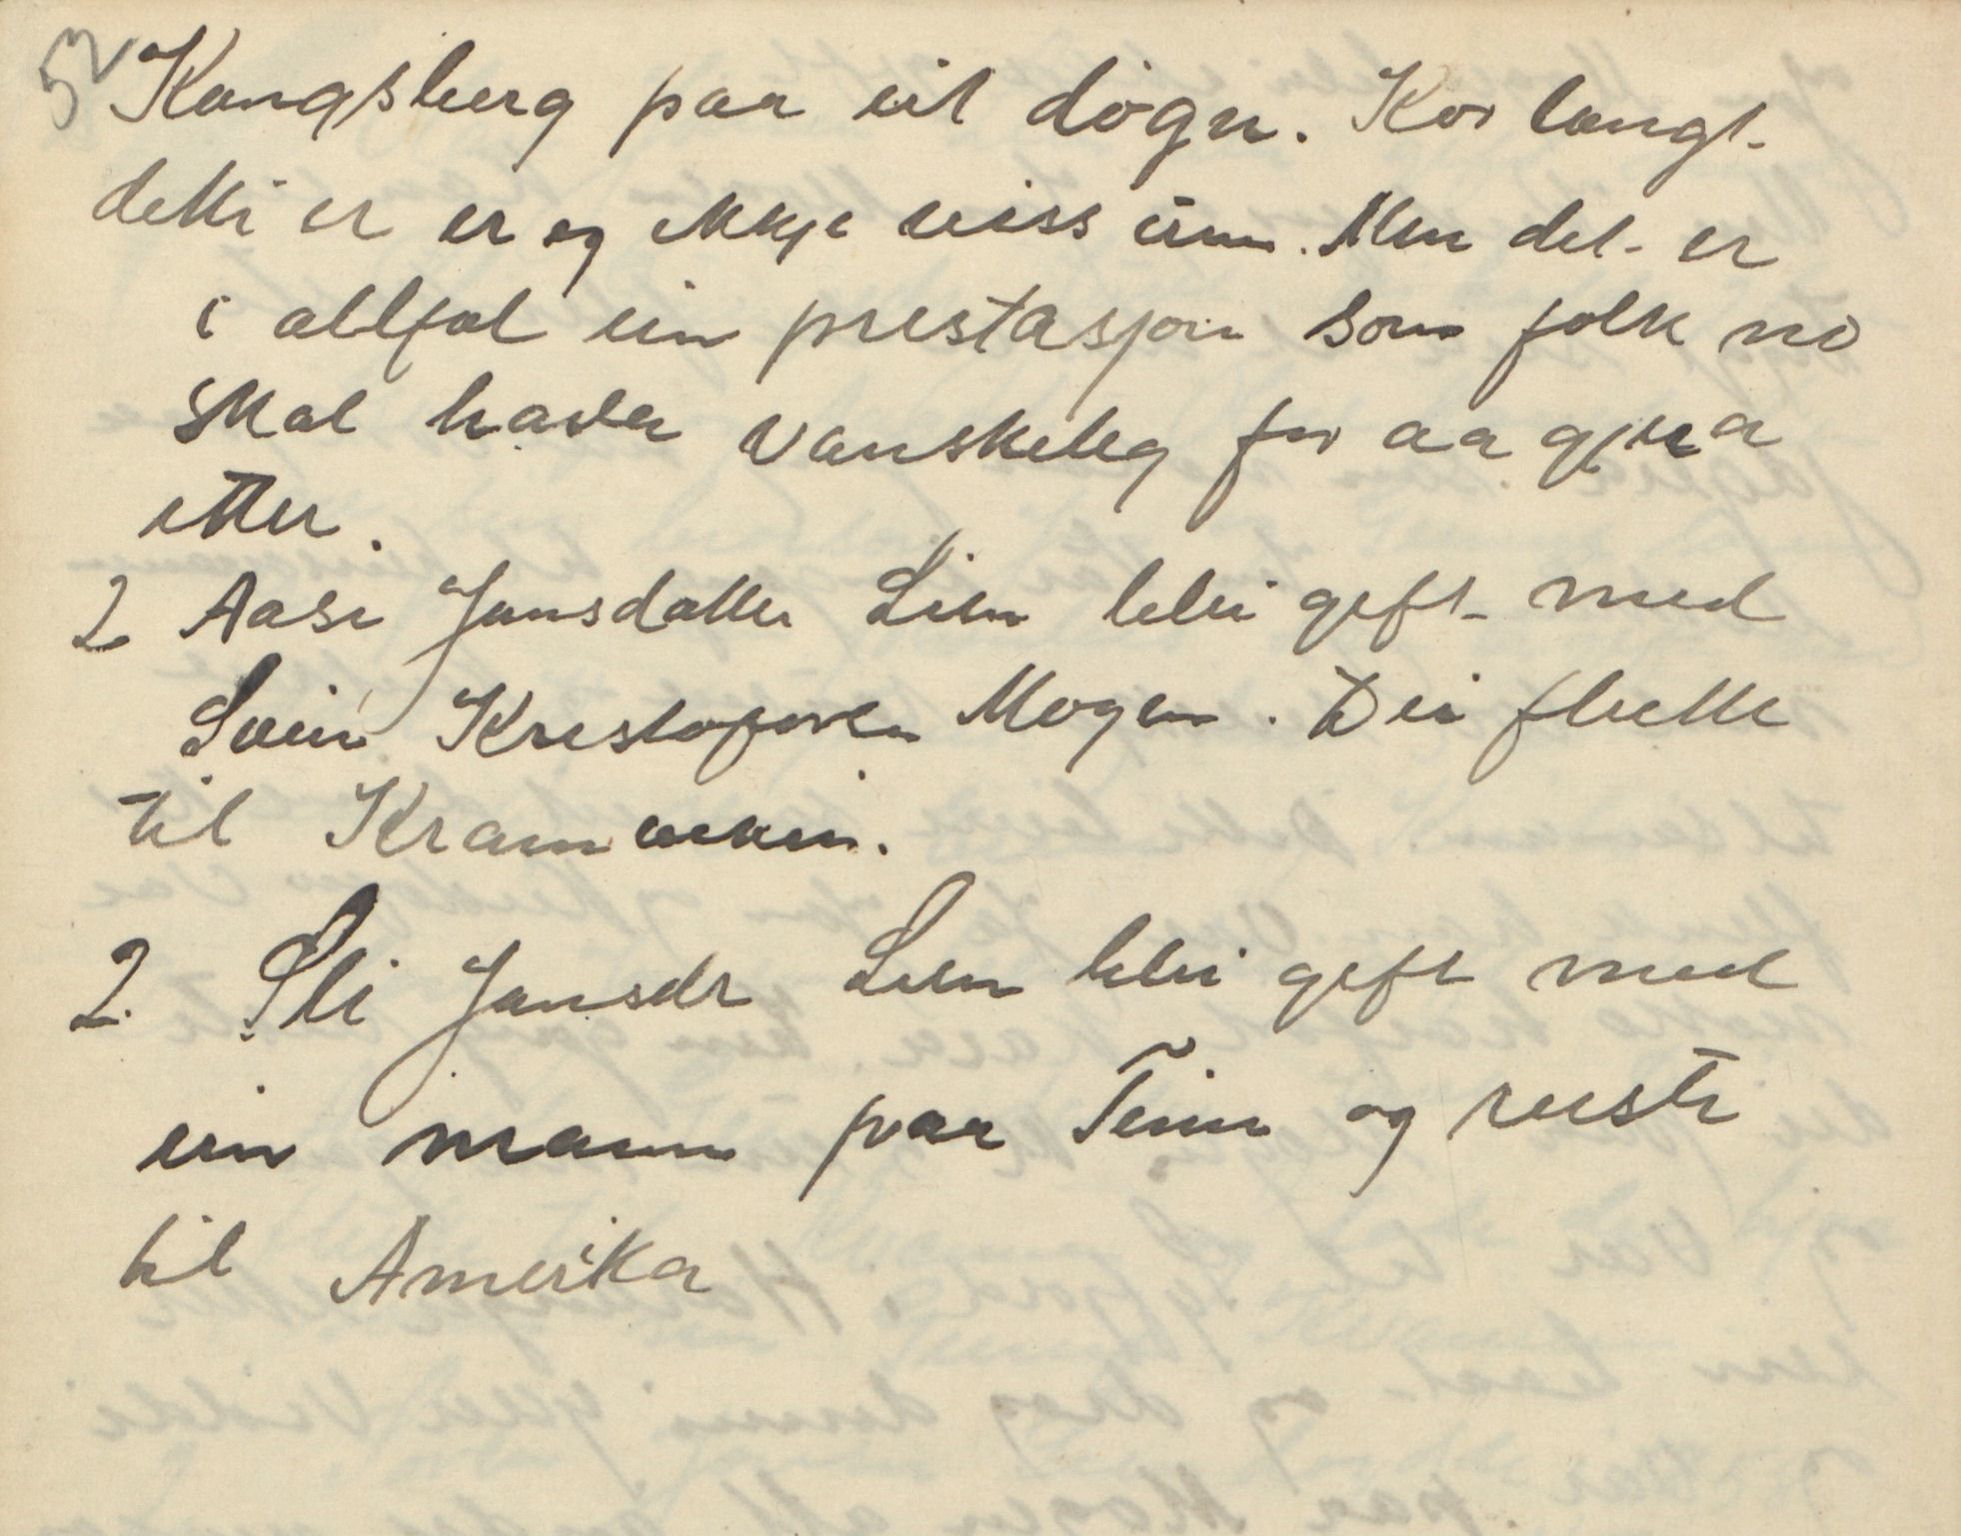 52
Kongsberg paa eit døgn. Kor langt
dette er er eg ikkje viss um. Men det er
i allfal ein prestasjon som folk no
skal hava vanskeleg for aa gjera
etter.
2 Aase Jonsdatter Lien blei gift med
Svein Kristofersen Mogen. Dei flutte
til Kramviken.
2. Sli Jonsdr Lien blei gift med
ein mann paa Tinn og reiste
til Amerika